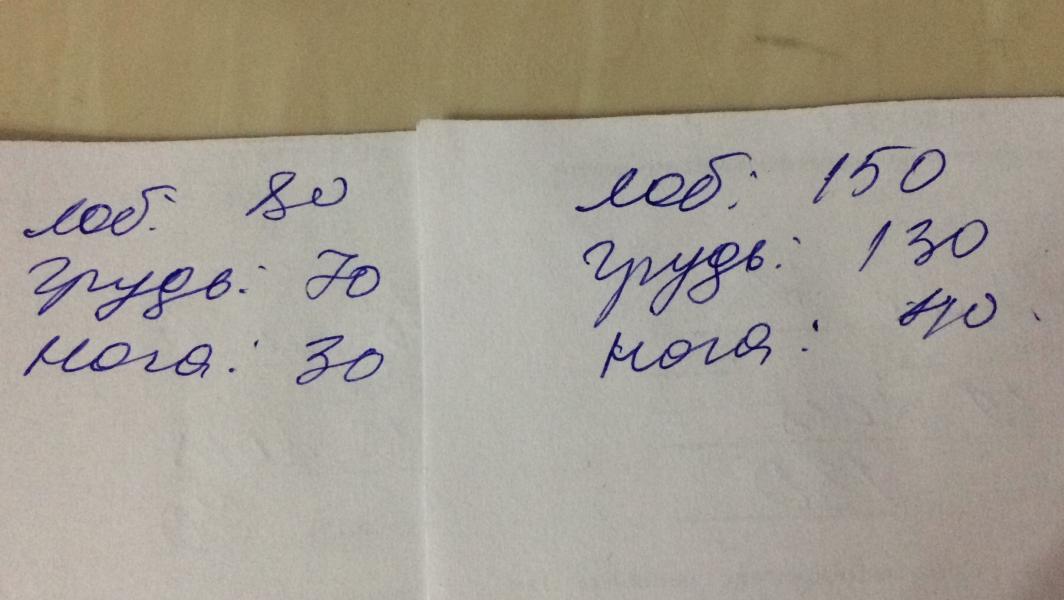 лоб: 80
грудь: 70
нога: 30
лоб: 150
грудь: 130
нога: